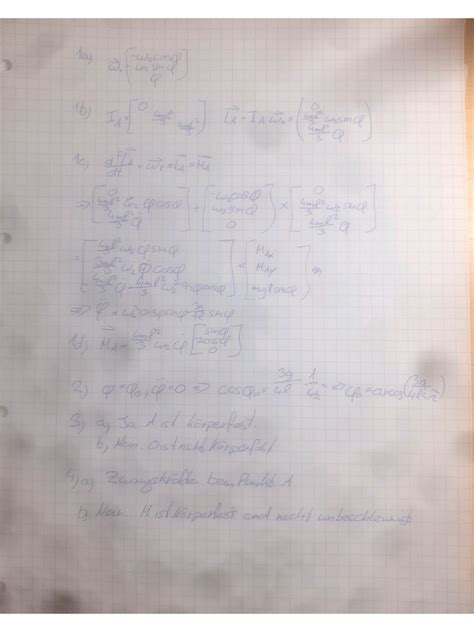 1a) ω⃗₂ [ -ω₂cosφ ; ω₂ sinφ ; φ̇ ]
1b) I_A = [ 0 ; 4ml²/3 ; 4ml²/3 ] L⃗_A = I_A ω⃗₂ = ( 0 ; 4ml²/3 ω₂sinφ ; 4ml²/3 φ̇ )
1c) dL⃗_A/dt + ω⃗₂ × L⃗_A = M⃗_A
⇒ [ 0 ; 4ml²/3 ω₂ φ̇cosφ ; 4ml²/3 φ̈ ] + [ -ω₂cosφ ; ω₂ sinφ ; 0 ] × [ 0 ; 4ml²/3 ω₂ sinφ ; 4ml²/3 φ̇ ]
= [ 4ml²/3 ω₂ φ̇ sinφ ; ω₂ φ̇ cosφ ; 4ml²/3 φ̈ - 4ml²/3 ω₂² sinφcosφ ] = [ M_Ax ; M_Ay ; mglsinφ ]
⇒ φ̈ = ω₂² cosφsinφ sinφ
1d) M⃗_A = 4ml²/3 ω₂ φ̇ [ sinφ ; 2cosφ ; 0 ]
2) φ=φ₀, φ̇=0 ⇒ cosφ₀ = 3g/4l · 1/ω₂² ⇒ φ₀=arccos(3g/4lω₂²)
3) a) Ja A ist körperfest.
b) Nein. O ist nicht körperfest
4) a) Zwangskräfte beim Punkt A
b) Nein. M ist körperfest und nicht unbeschleunigt